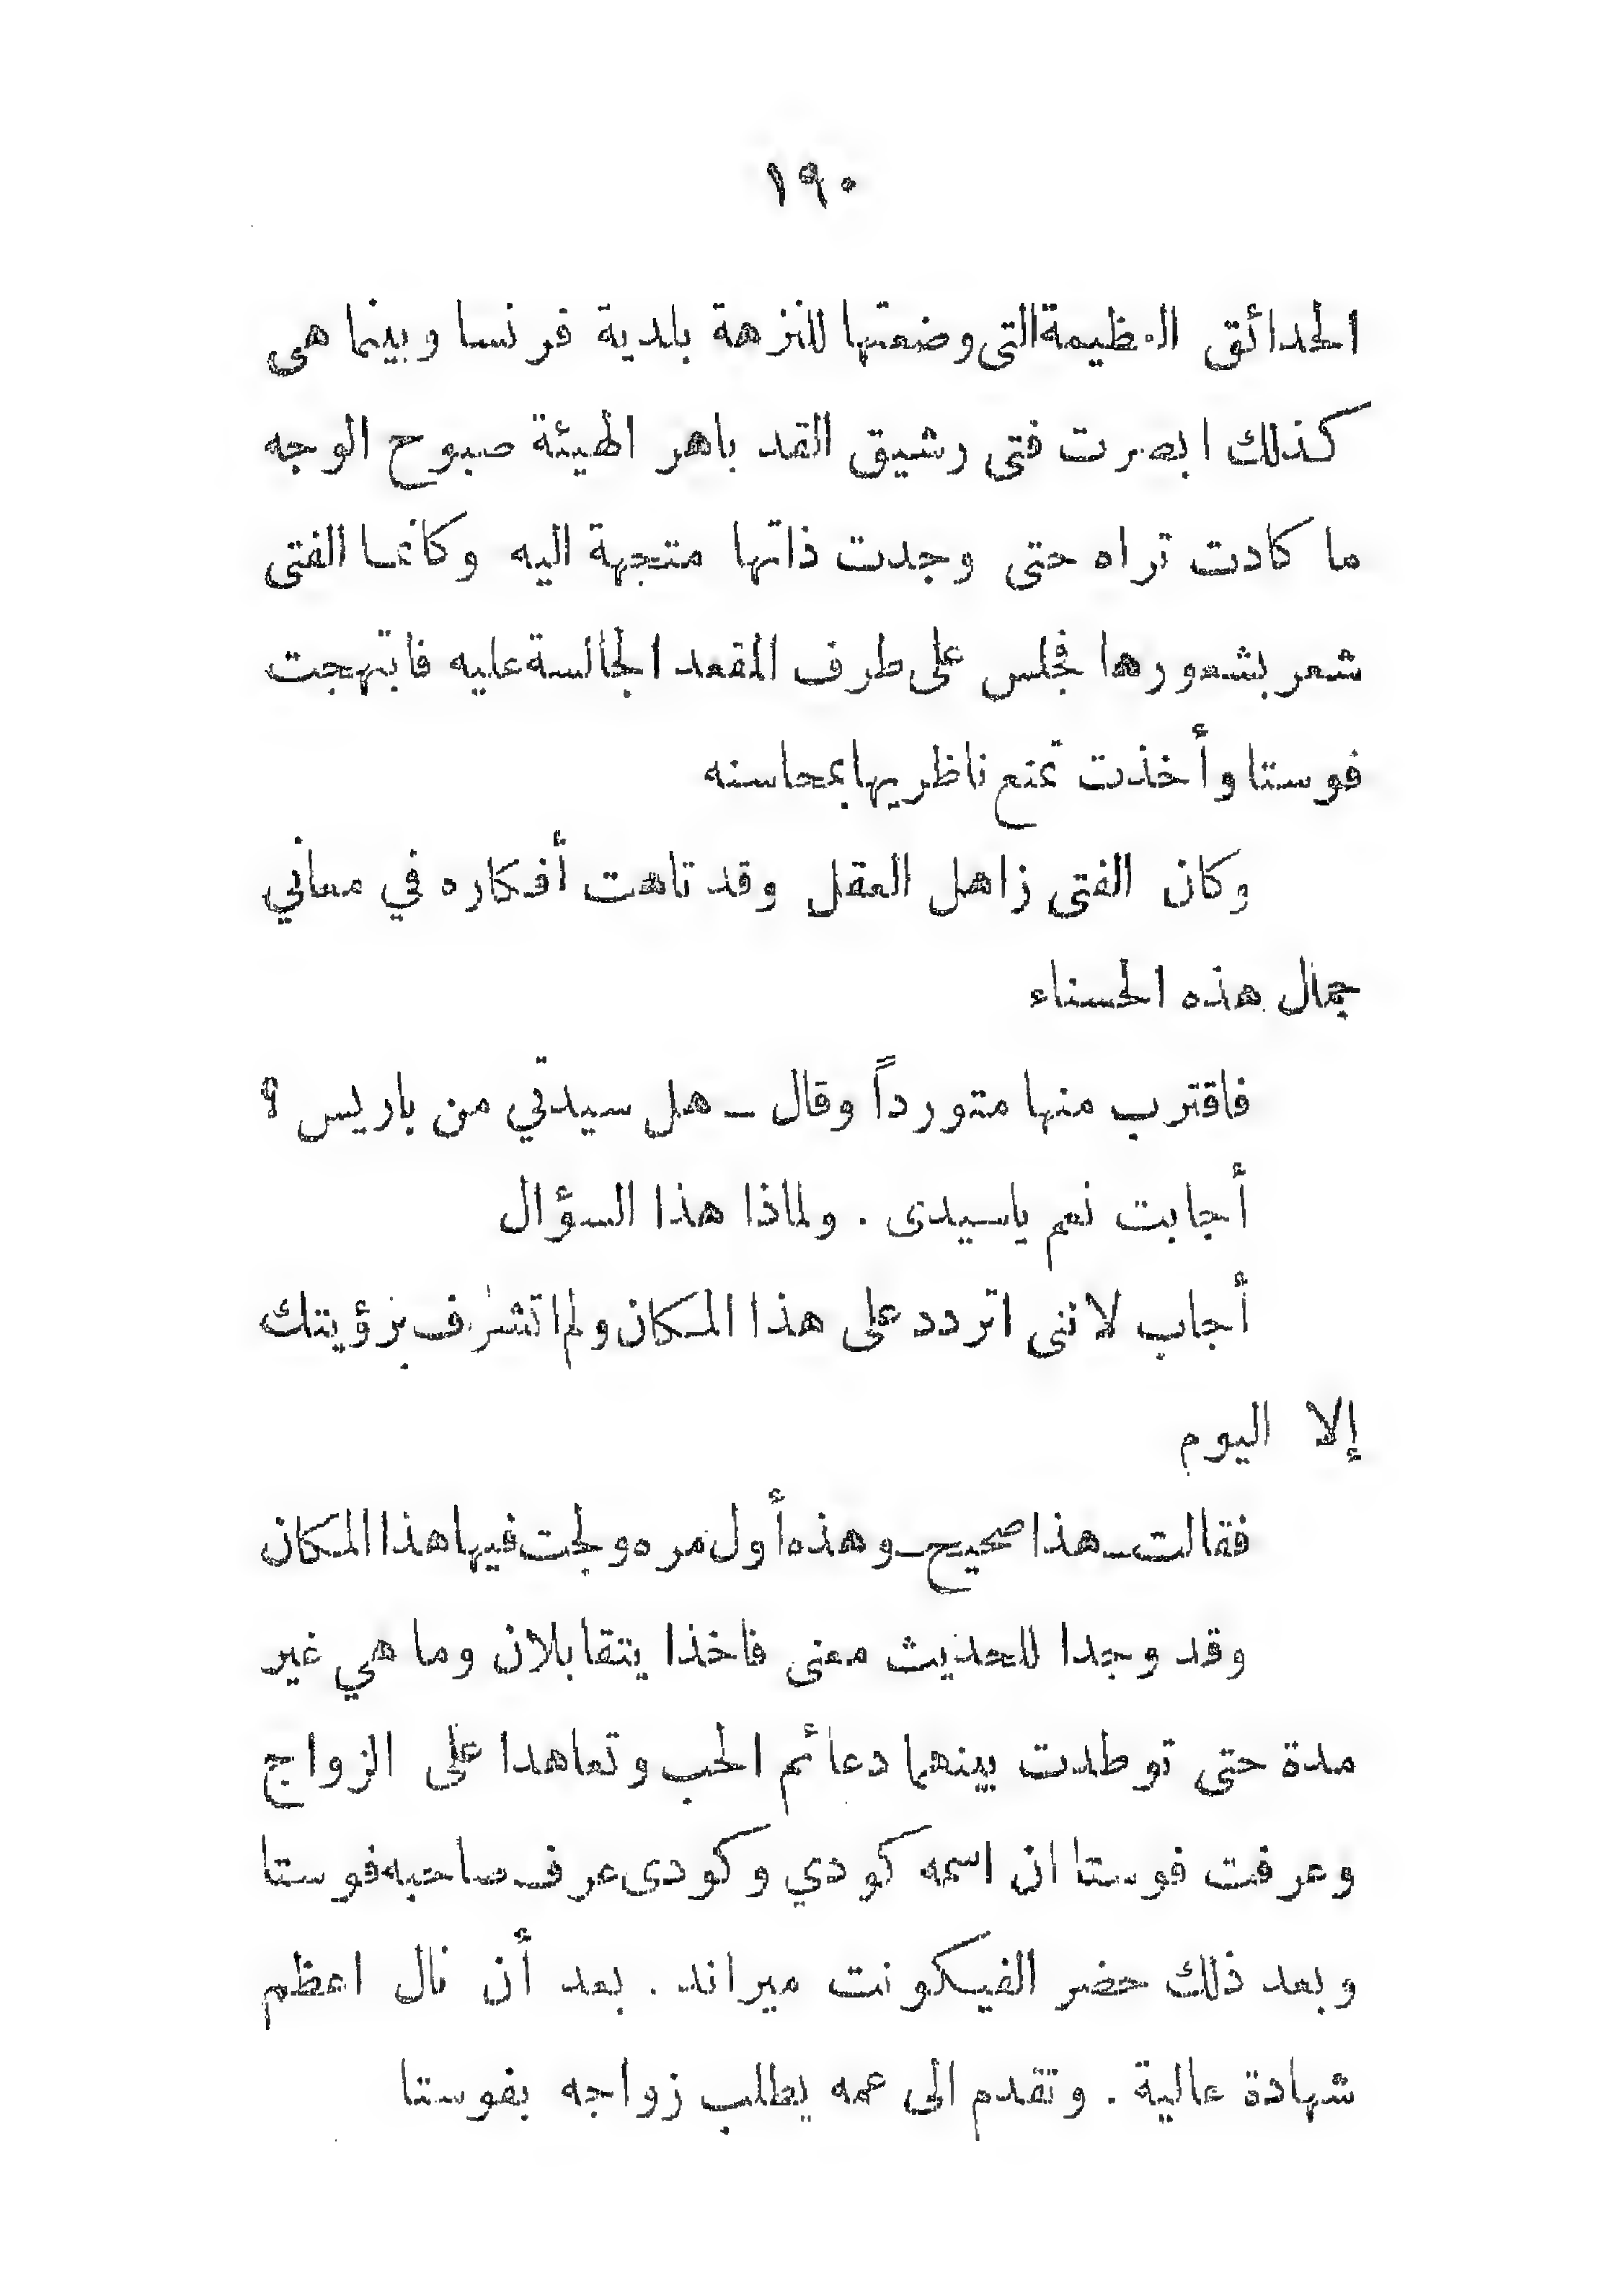 ١٩٠
الحدائق العظيمة التى وضعتها للنزهة بلدية فرنسا وبينما هى
كذلك ابصرت فتى رشيق القد باهر الهيئة صبوح الوجه
ما كادت تراه حتى وجدت ذاتها متجهة اليه وكانما الفتى
شعر بشعورها فجلس على طرف المقعد الجالسة عليه فابتهجت
فوستا وأخذت تمتع ناظريها بمحاسنه
وكان الفتى زاهل العقل وقد تاهت أفكاره في معاني
جمال هذه الحسناء
فاقترب منها متورداً وقال ــ هل سيدتي من باريس ؟
أجابت نعم ياسيدى . ولماذا هذا السؤال
أجاب لاننى اتردد على هذا المكان ولم اتشرف برؤيتك
إلا اليوم
فقالت ــ هذا صحيح ــ وهذه أول مره ولجت فيها هذا المكان
وقد وجدا للحديث معنى فاخذا يتقابلان وما هي غير
مدة حتى توطدت بينهما دعائم الحب وتعاهدا على الزواج
وعرفت فوستا ان اسمه كودي وكودى عرف صاحبه فوستا
وبعد ذلك حضر الفيكونت ميراند . بعد أن نال اعظم
شهادة عالية . وتقدم الى عمه يطلب زواجه بفوستا